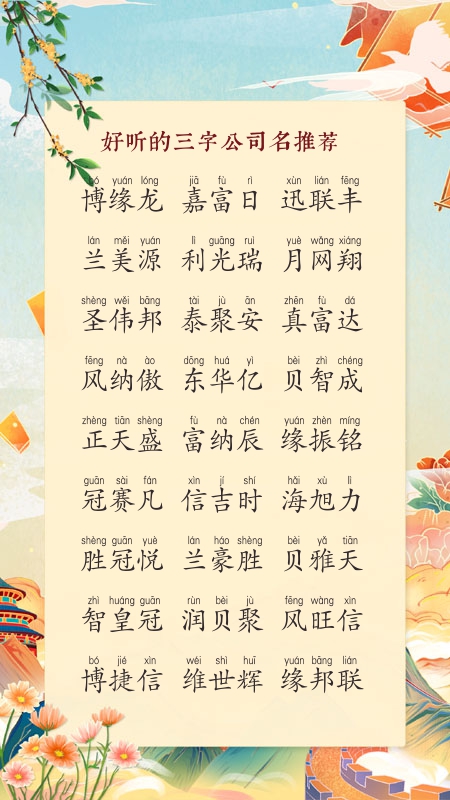 好听的三字公司名推荐
bó yuán lóng jiā fù rì xùn lián fēng
博缘龙 嘉富日 迅联丰
lán měi yuán lì guāng ruì yuè wǎng xiáng
兰美源 利光瑞 月网翔
shèng wěi bāng tài jù ān zhēn fù dá
圣伟邦 泰聚安 真富达
fēng nà ào dōng huá yì bèi zhì chéng
风纳傲 东华亿 贝智成
zhèng tiān shèng fù nà chén yuán zhèn míng
正天盛 富纳辰 缘振铭
guān sài fán xìn jí shí hǎi xù lì
冠赛凡 信吉时 海旭力
shèng guān yuè lán háo shèng bèi yǎ tiān
胜冠悦 兰豪胜 贝雅天
zhì huáng guān rùn bèi jù fēng wàng xìn
智皇冠 润贝聚 风旺信
bó jié xìn wéi shì huī yuán bāng lián
博捷信 维世辉 缘邦联